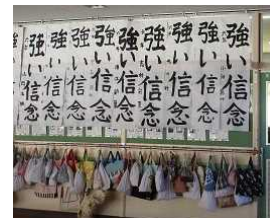 強い信念
強い信念
強い信念
強い信念
強い信念
強い信念
強い信念
強い信念